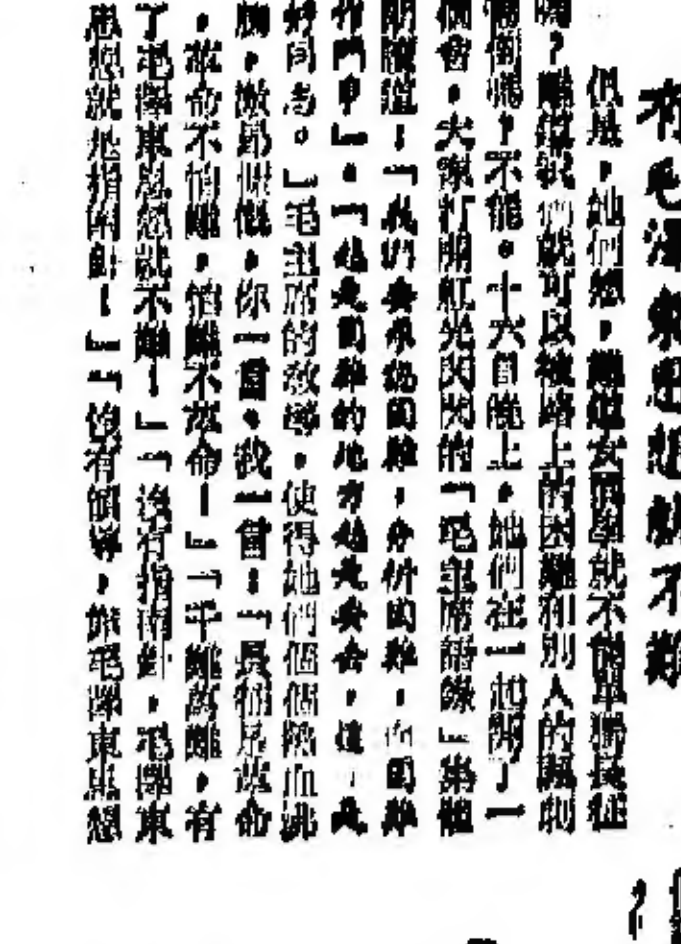 有毛澤東思想就不難
但是，她們想，難道女同學就不能單獨長征
嗎？難道我們就可以被路上的困難和別人的諷刺
嚇倒嗎？不能。十六日晚上，她們在一起開了一
個會，大家打開紅光閃閃的「毛主席語錄」集體
朗讀道：「我們要承認困難，分析困難，向困難
作鬥爭」。「越是困難的地方越是要去，這才是
好同志。」毛主席的教導，使得她們個個熱血沸
騰，激昂慷慨，你一言，我一言：「長征是革命
，革命不怕難，怕難不革命！」「千難萬難，有
了毛澤東思想就不難！」「沒有指南針，毛澤東
思想就是指南針！」「沒有領導，
毛澤東思想